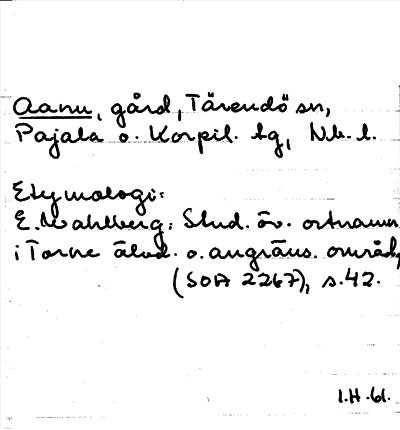 Aanu, gård, Tärendö sn,
Pajala o. Korpil. tg, Nb. l.
Etymologi:
E. Wahlberg: Stud. öv. ortnamn
i Torne älvd. o. angräns. områd,
(SOA 2267), s. 42.
I.H. 61.